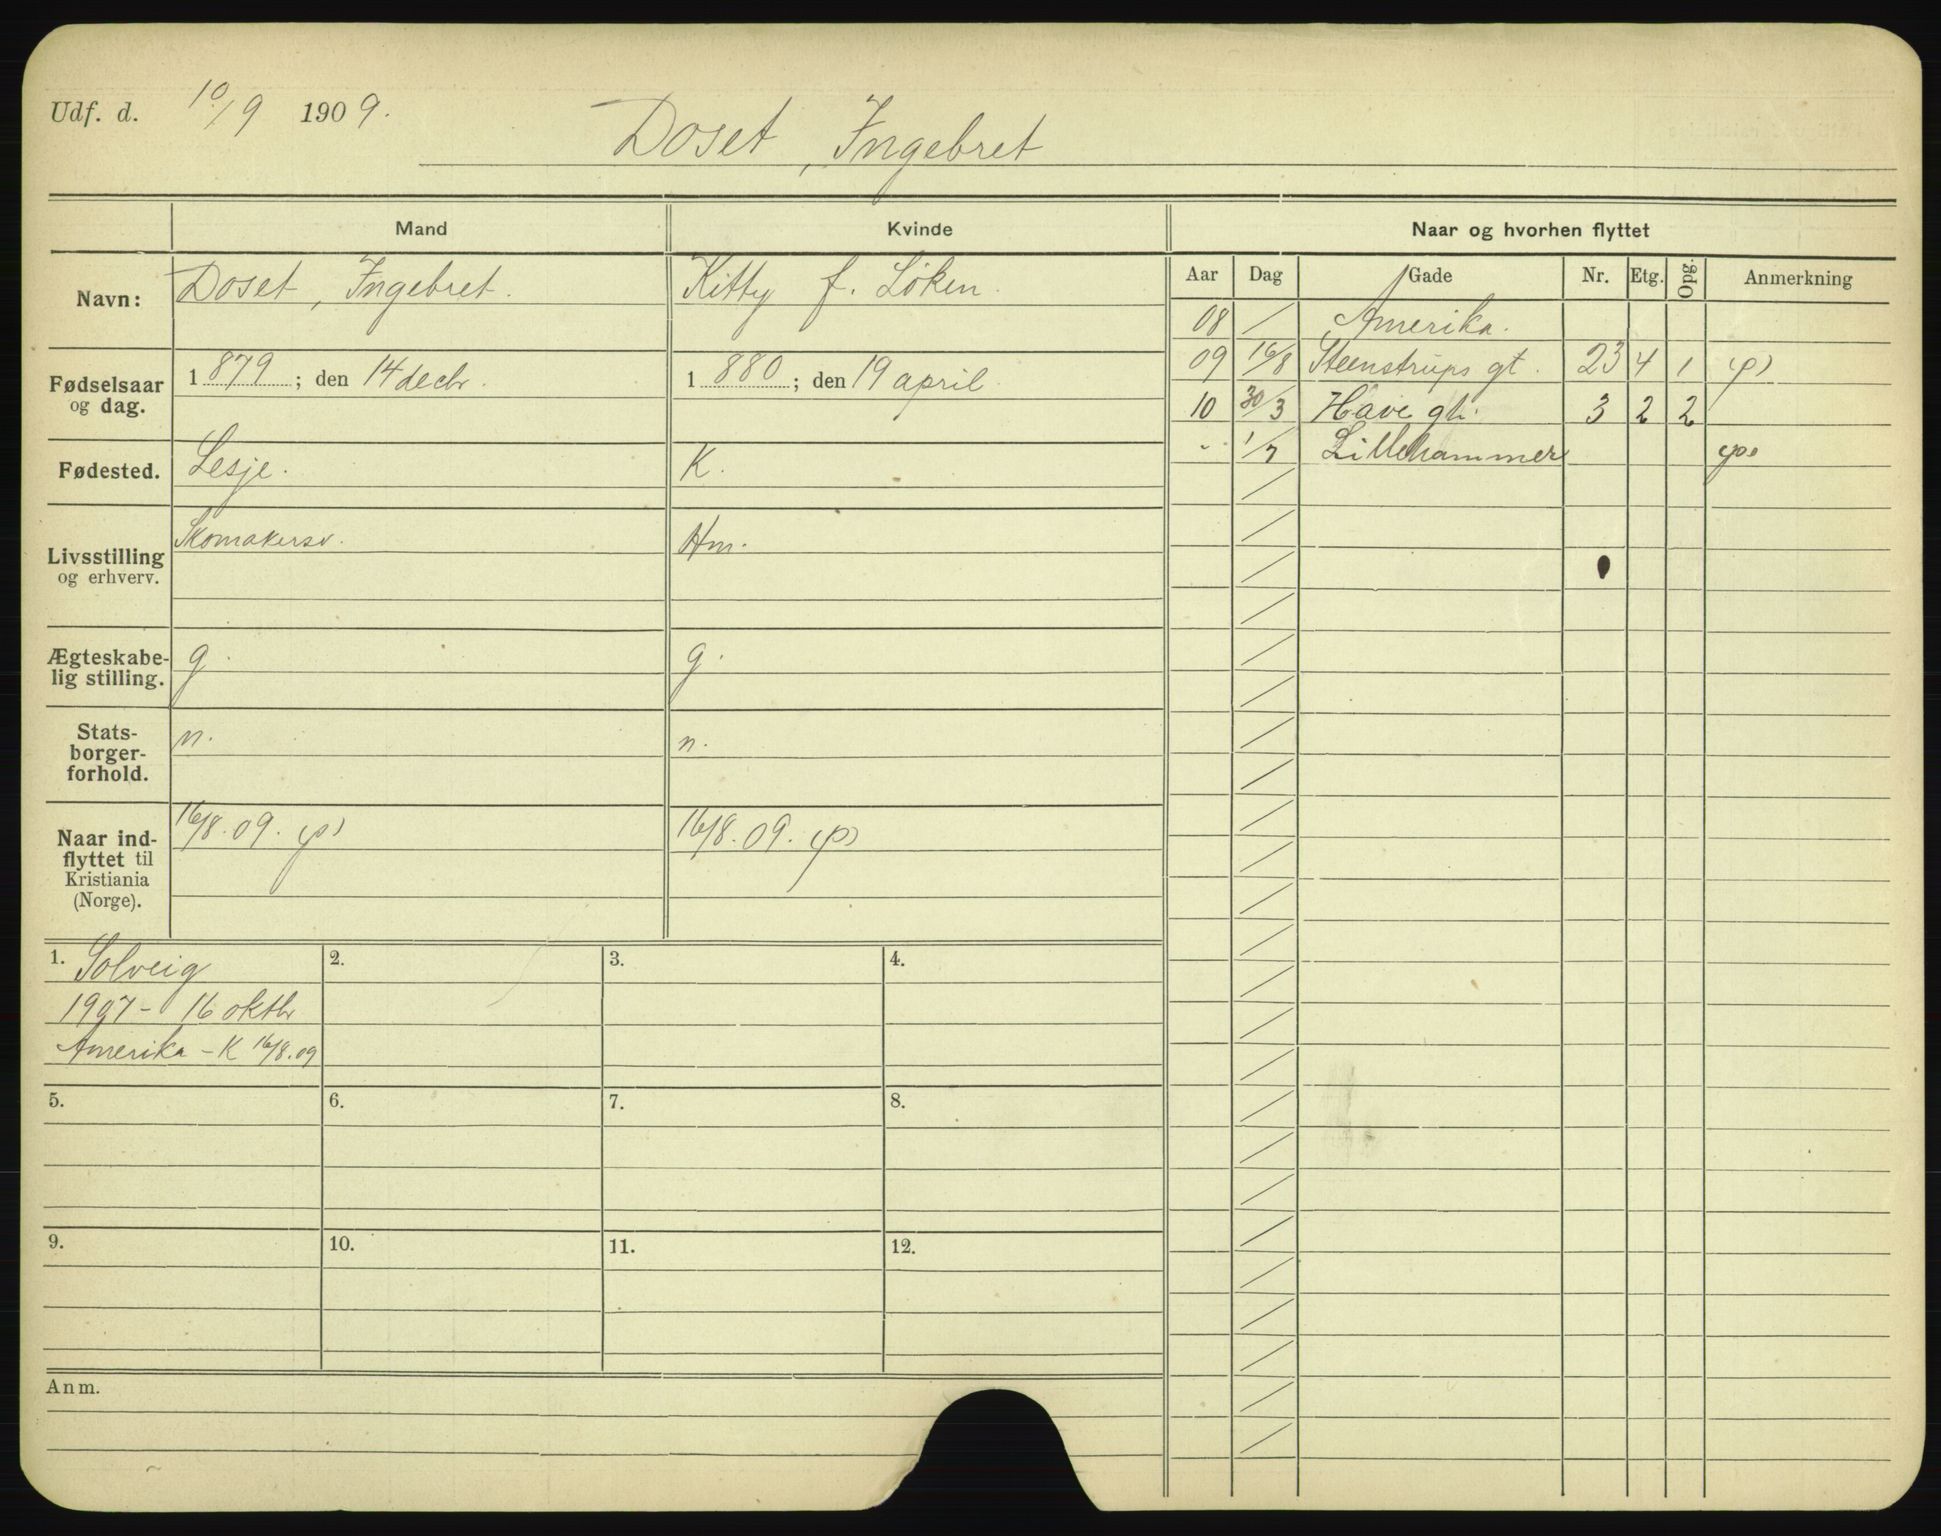 Udf. d. 10/9 1909.
Doset, Ingebret
Mand Kvinde Naar og hvorhen flyttet
Navn: Doset, Ingebret. Kitty f. Löken.
Fødselsaar og dag. 1879; den 14 decbr. 1880; den 19 april.
Fødested. Lesje. K.
Livsstilling og erhverv. Skomakersv. Hm.
Ægteskabe-
lig stilling. g. g.
Stats-
borger-
forhold. n. n.
Naar ind-
flyttet til
Kristiania
(Norge). 16/8.09. (p) 16/8.09. (p)
1. Solveig
1907 - 16 oktbr
Amerika - K 16/8.09
2.
3.
4.
5.
6.
7.
8.
9.
10.
11.
12.
Anm.
Aar Dag Gade Nr. Etg. Opg. Anmerkning
08 / Amerika.
09 16/8 Steenstrups gt. 23 4 1 (p)
10 30/3 Have gt. 3 2 2
" 1/7 Lillehammer